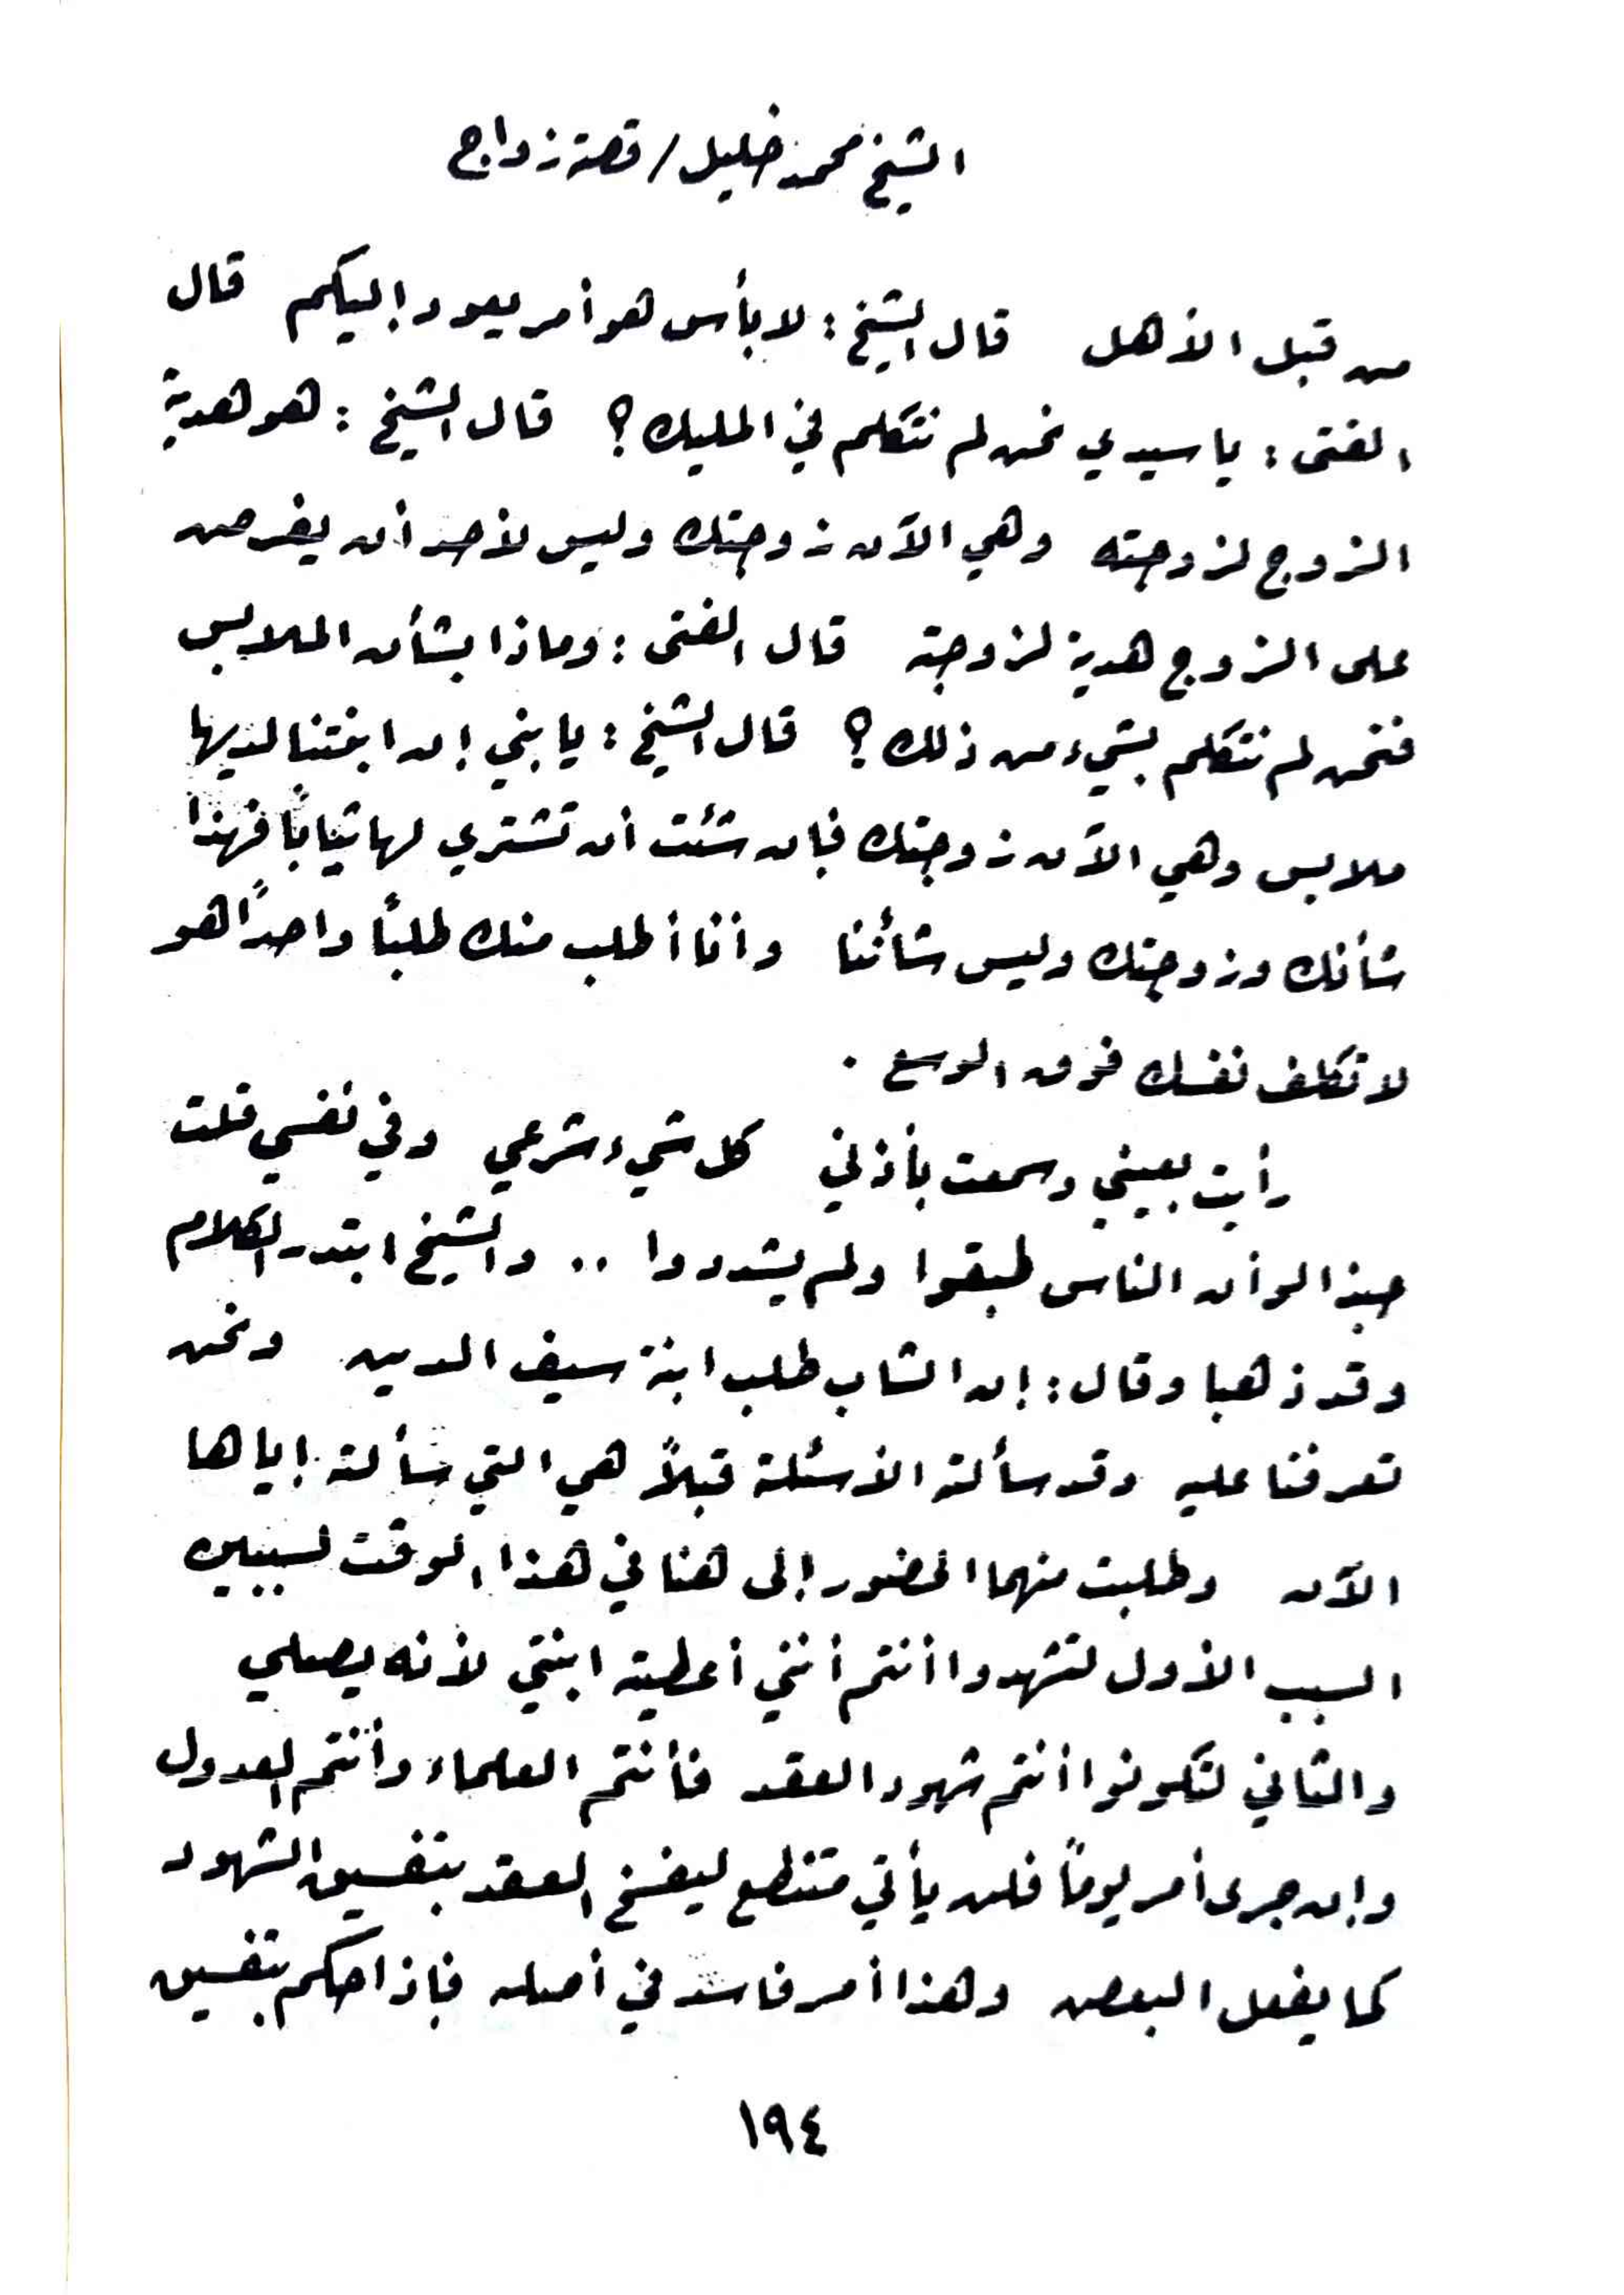 الشيخ محمد خليل / قصة زواج
من قبل الأهل قال الشيخ : لا بأس هو أمر يعود إليكم قال
الفتى : يا سيدي نحن لم نتكلم في المليك ؟ قال الشيخ : هو هدية
الزوج لزوجته وهي الآن زوجتك وليس لأحد أن يفرض
على الزوج هدية لزوجته قال الفتى : وماذا بشأن الملابس
فنحن لم نتكلم بشيء من ذلك ؟ قال الشيخ : يا بني إن ابنتنا لديها
ملابس وهي الآن زوجتك فإن شئت أن تشتري لها ثياباً فهذا
شأنك وزوجتك وليس شأننا وأنا أطلب منك طلباً واحداً هو
لا تكلف نفسك فوق الوسع .
رأيت بعيني وسمعت بأذني كل شيء شرعي وفي نفسي قلت
حبذا لو أن الناس طبقوا ولم يشددوا .. والشيخ ابتدر الكلام
وقد ذهبا وقال : إن الشاب طلب ابنة سيف الدين ونحن
تعرفنا عليه وقد سألته الأسئلة قبلاً هي التي سألته إياها
الآن وطلبت منهما الحضور إلى هنا في هذا الوقت لسببين
السبب الأول لتشهدوا أنتم أنني أعطيته ابنتي لأنه يصلي
والثاني لتكونوا أنتم شهود العقد فأنتم العلماء وأنتم العدول
وإن جرى أمر يوماً فلن يأتي متنطع ليفسخ العقد بتفسيق الشهود
كما يفعل البعض وهذا أمر فاسد في أصله فإذا حكم بتفسيق
١٩٤